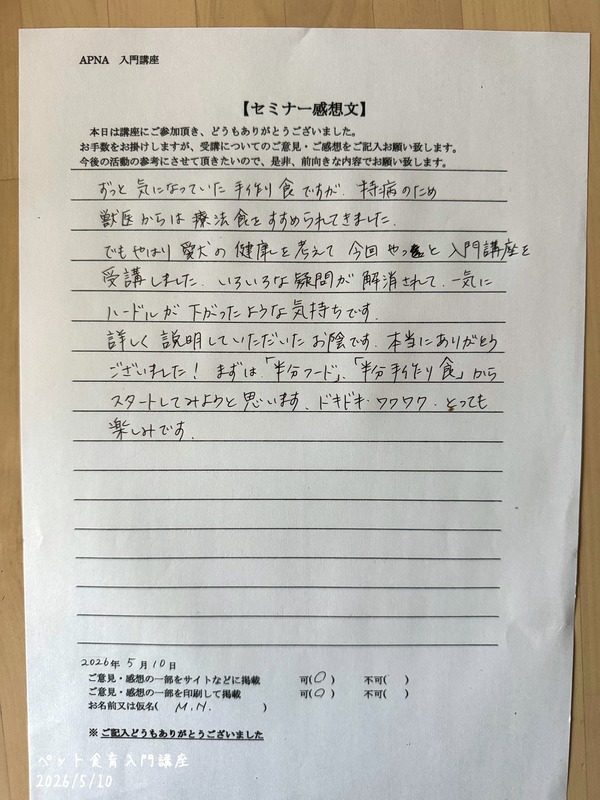 APNA 入門講座
【セミナー感想文】
本日は講座にご参加頂き、どうもありがとうございました。
お手数をお掛けしますが、受講についてのご意見・ご感想をご記入お願い致します。
今後の活動の参考にさせて頂きたいので、是非、前向きな内容でお願い致します。
ずっと 気になっていた 手作り食ですが、持病のため
獣医からは 療法食をすすめられてきました。
でもやはり 愛犬の 健康を考えて 今回 やっと 入門講座を
受講しました。いろいろな疑問が 解消されて、一気に
ハードルが 下がったような気持ちです。
詳しく 説明していただいた お陰です。本当にありがとう
ございました! まずは「半分フード」、「半分手作り食」から
スタートしてみようと 思います。ドキドキ・ワクワク・とっても
楽しみです。
2026年 5月10日
ご意見・感想の一部をサイトなどに掲載 可(○) 不可( )
ご意見・感想の一部を印刷して掲載 可(○) 不可( )
お名前又は仮名( M.N. )
※ご記入どうもありがとうございました
ペット食育入門講座
2026/5/10